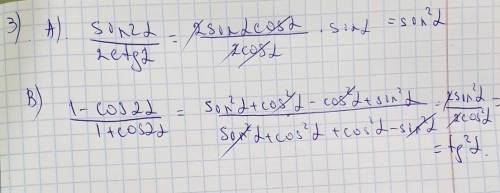 3). A). sin2α / 2ctgα = 2sinαcosα / 2cosα · sinα = sin²α
B) 1 - cos2α / 1 + cos2α = sin²α + cos²α - cos²α + sin²α / sin²α + cos²α + cos²α - sin²α = 2sin²α / 2cos²α =
= tg²α.